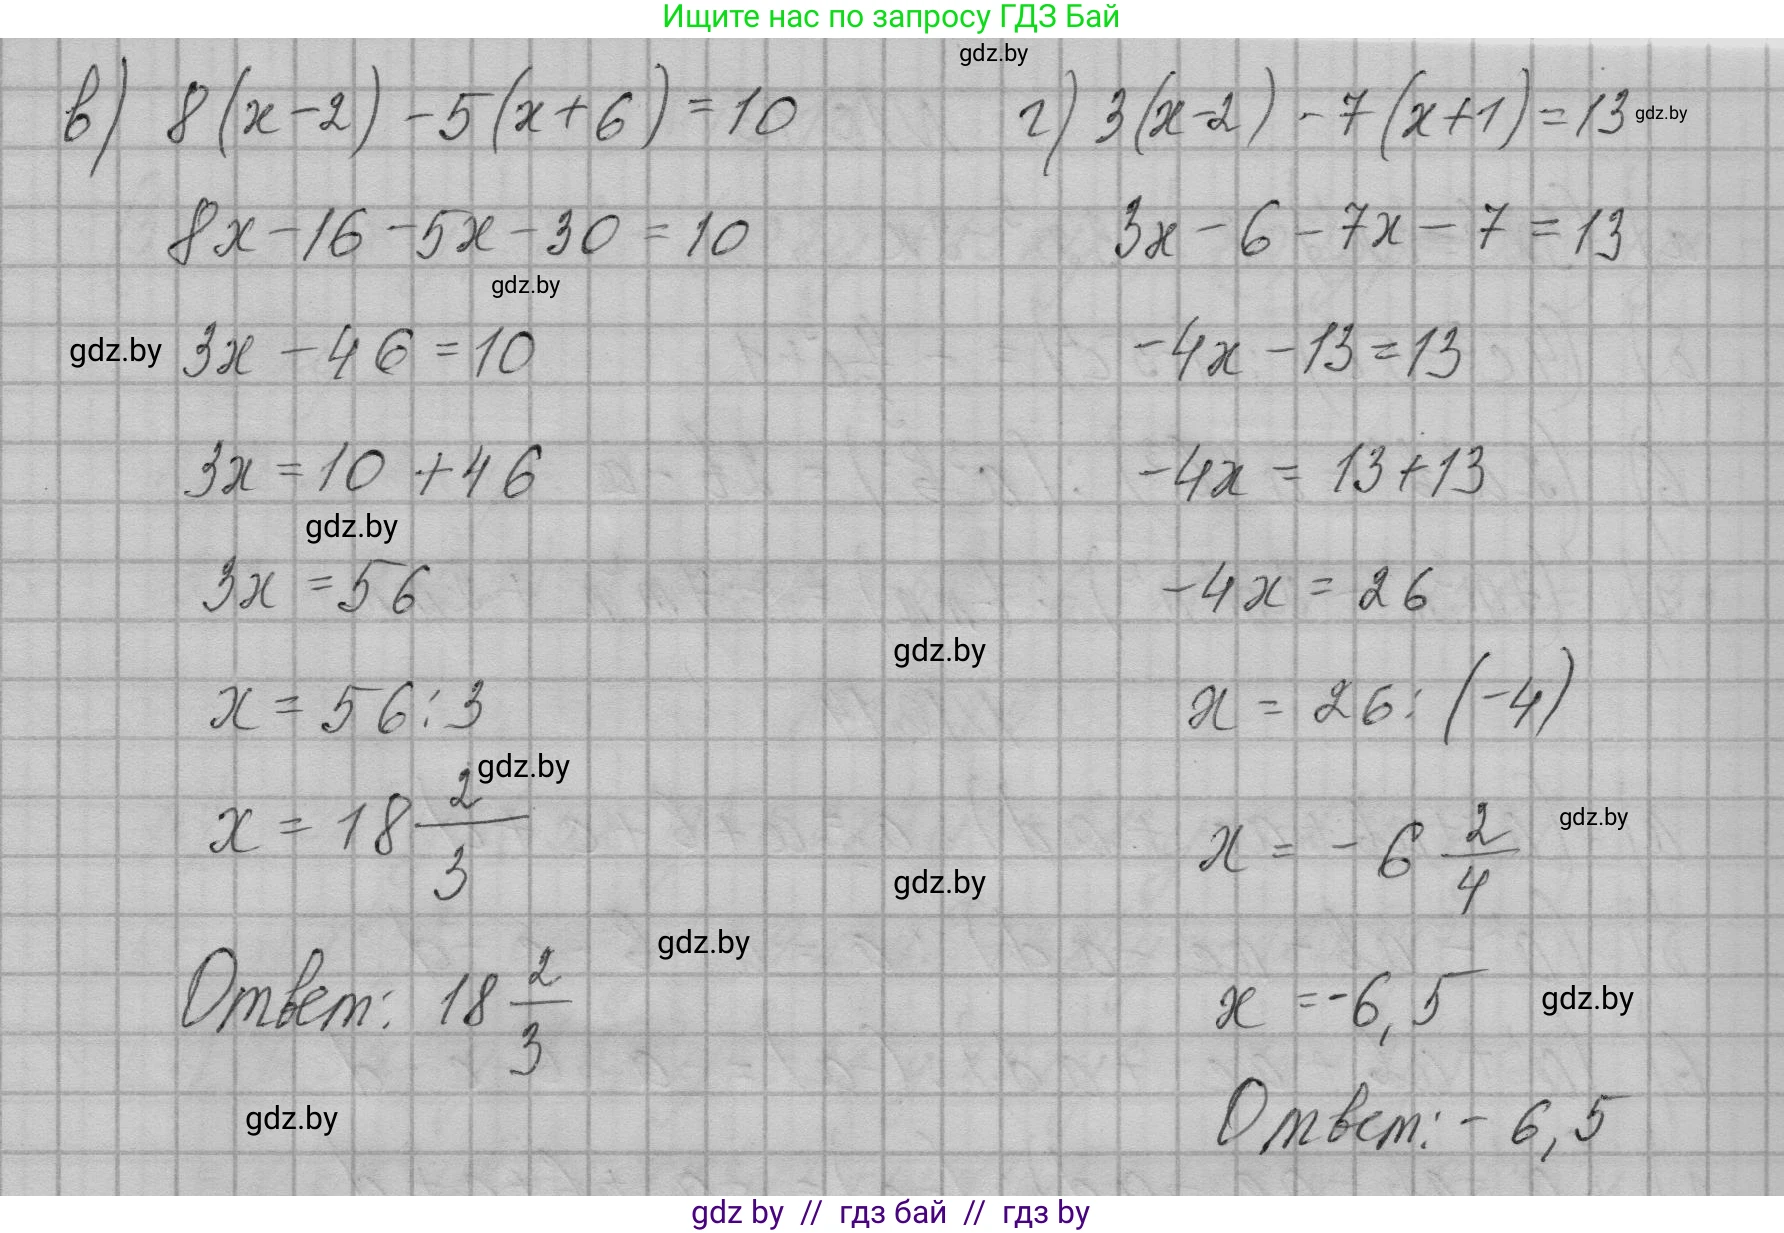 Ищите нас по запросу ГДЗ Бай
gdz.by
в) 8(x-2) -5(x+6) = 10
8x-16-5x-30=10
gdz.by
gdz.by
3x-46=10
3x=10+46
gdz.by
3x=56
x=56:3
gdz.by
x=18 2/3
gdz.by
Ответ: 18 2/3
gdz.by
г) 3(x-2) -7(x+1)=13
gdz.by
3x-6-7x-7=13
-4x-13=13
-4x=13+13
-4x=26
gdz.by
x=26:(-4)
gdz.by
x=-6 2/4
gdz.by
x=-6,5
gdz.by
Ответ: -6,5
gdz by // гдз бай // гдз by